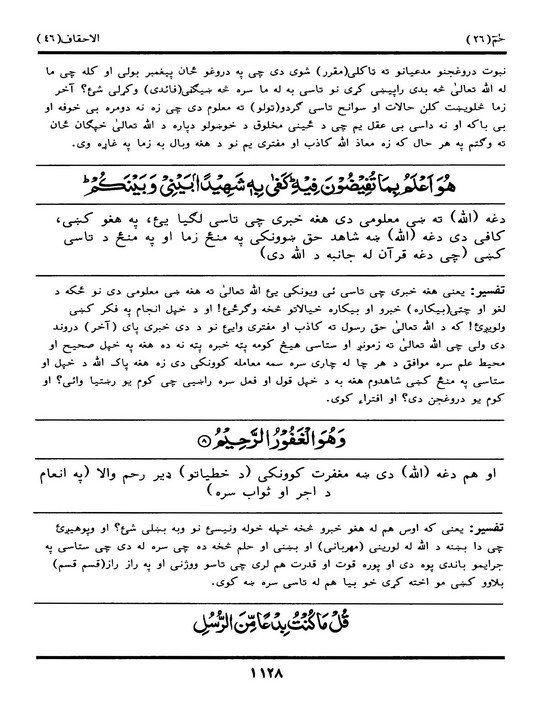 حٰمٓ (۲۶) الاحقاف (۴۶)
نبوت دروغجنو مدعیانو ته تاکلی(مقرر) شوی دی چی په دروغو ځان پیغمبر بولی او کله چی ما
له الله تعالیٰ څه بدی راپیښی کړی نو تاسی به له ما سره څه ښیګڼی(فائدی) وکړلی شئ؟ آخر
زما څلویښت کلن حالات او سوانح تاسی ګردو(تولو) ته معلوم دی چی زه نه دومره بی خوفه او
بی باکه او نه داسی بی عقل یم چی د ځینی مخلوق د خوښولو دپاره د الله تعالیٰ خپګان ځان
ته وګټم په هر حال که زه معاذ الله کاذب او مفتری یم نو د هغه وبال به زما په غاړه وی.
هُوَ اَعْلَمُ بِمَا تُفِيْضُوْنَ فِيْهِ ؕ كَفٰى بِهٖ شَهِيْدًۢا بَيْنِيْ وَبَيْنَكُمْ ؕ
دغه (الله) ته ښی معلومی دی هغه خبری چی تاسی لګیا یئ، په هغو کښی،
کافی دی دغه (الله) ښه شاهد حق ښوونکی په منځ زما او په منځ د تاسی
کښی (چی دغه قرآن له جانبه د الله دی)
تفسیر: یعنی هغه خبری چی تاسی ئی ویونکی یئ الله تعالیٰ ته هغه ښی معلومی دی نو څکه د
لغو او چتی(بیکاره) خبرو او بیکاره خیالاتو څخه وګرځئ! او د خپل انجام په فکر کښی
ولویږئ! که د الله تعالیٰ حق رسول ته کاذب او مفتری وایئ نو د دی خبری پای (آخر) دروند
دی ولی چی الله تعالیٰ ته زمونږ او ستاسی هیڅ کومه پټه خبره پټه نه ده هغه په خپل صحیح او
محیط علم سره موافق د هر چا له چاری سره سمه معامله کوونکی دی زه هغه پاک الله د خپل او
ستاسی په منځ کښی شاهدوم هغه به د خپل قول او فعل سره راښیی چی کوم یو رښتیا وائی؟ او
کوم یو دروغجن دی؟ او افتراء کوی.
وَهُوَ الْغَفُوْرُ الرَّحِيْمُ ۝۸
او هم دغه (الله) دی ښه مغفرت کوونکی (د خطیاتو) ډیر رحم والا (په انعام
د اجر او ثواب سره)
تفسیر: یعنی که اوس هم له هغو خبرو څخه خپله خوله ونیسئ نو وبه بښلی شئ؟ او وپوهیږئ
چی دا بښنه د الله له لورینی (مهربانی) او بښنی او حلم څخه ده چی سره له دی چی ستاسی په
جرایمو باندی پوه دی او پوره قوت او قدرت هم لری چی تاسو ووژنی او په راز راز(قسم قسم)
بلاوو کښی مو اخته کړی خو بیا هم له تاسی سره ښه کوی.
قُلْ مَا كُنْتُ بِدْعًا مِّنَ الرُّسُلِ
۱۱۲۸